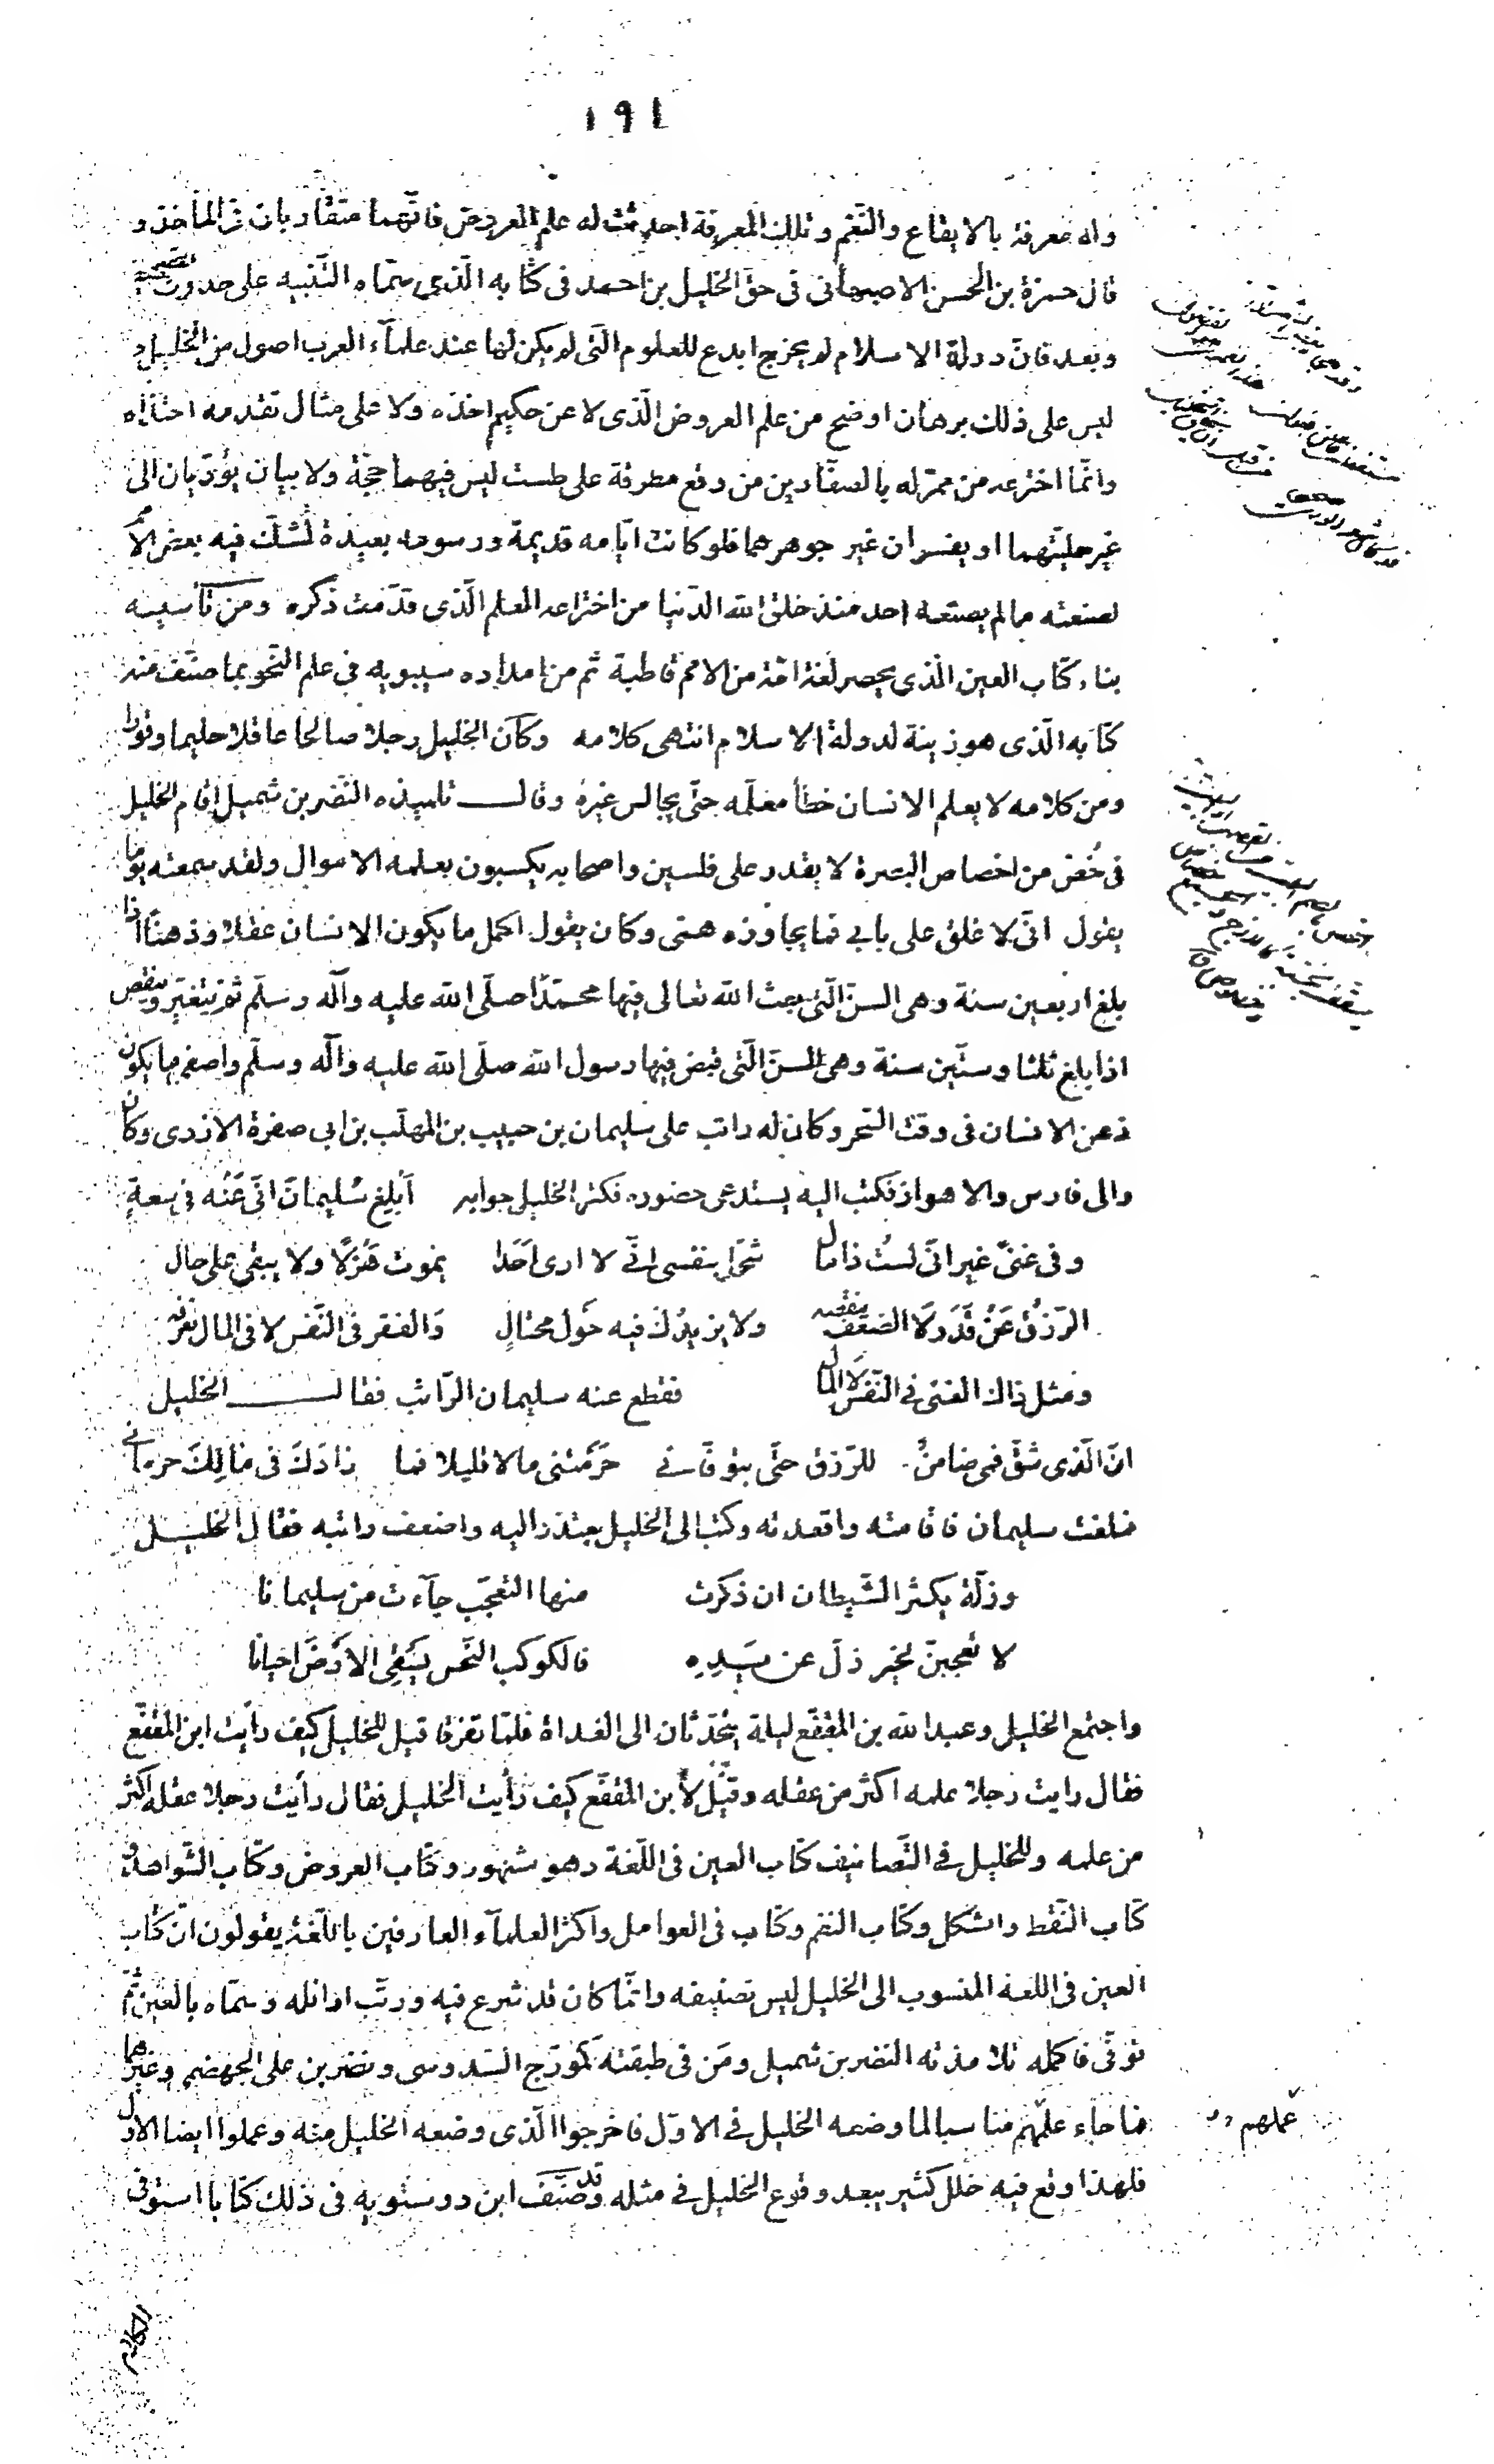 ١٩١
وله معرفة بالايقاع والنّغم وتلك المعرفة احدثت له علم العروض فانّهما متقاربان فى المأخذ و
قال حمزة بن الحسن الاصبهانى فى حقّ الخليل بن احمد فى كتابه الّذى سمّاه التّنبيه على حدوث التصحيف
وبعد فانّ دولة الاسلام لم يخرج ابدع للعلوم الّتى لم يكن لها عند علمآء العرب اصول من الخليل و
ليس على ذلك برهان اوضح من علم العروض الّذى لا عن حكيم اخذه ولا على مثال تقدمه احتذاه
وانّما اخترعه من ممرّ له بالصفّارين من وقع مطرقة على طست ليس فيهما حجّة ولا بيان يؤدّيان الى
غير حليتهما او يفسران غير جوهرهما فلو كانت ايّامه قديمة ورسومه بعيدة لشكّ فيه بعض الأمم
لصنعته ما لم يصنعه احد منذ خلق الله الدّنيا من اختراعه العلم الّذى قدّمت ذكره ومن تأسيسه
بناء كتاب العين الّذى يحصر لغة امّة من الامم قاطبة ثم من امداده سيبويه فى علم النّحو بما صنّف منه
كتابه الّذى هو زينة لدولة الاسلام انتهى كلامه وكان الخليل رجلا صالحا عاقلا حليما وقورا
ومن كلامه لا يعلم الانسان خطأ معلّمه حتّى يجالس غيره وقال تلميذه النّضر بن شميل اقام الخليل
فى خُصّ من اخصاص البصرة لا يقدر على فلسين واصحابه يكسبون بعلمه الاموال ولقد سمعته يوما
يقول انّى لا غلق على بابي فما يجاوزه همّى وكان يقول اكمل ما يكون الانسان عقلا وذهنًا اذا
بلغ اربعين سنة وهى السنّ الّتى بعث الله تعالى فيها محمّدًا صلّى الله عليه وآله وسلّم ثمّ يتغيّر وينقص
اذا بلغ ثلثا وستّين سنة وهى السنّ الّتى قبض فيها رسول الله صلّى الله عليه وآله وسلّم واصفى ما يكون
ذهن الانسان فى وقت السّحر وكان له راتب على سليمان بن حبيب بن المهلّب بن ابي صفرة الازدى وكان
والى فارس والاهواز فكتب اليه يستدعى حضوره فكتب الخليل جوابه أبلِغ سُليمانَ انّى عَنْه فى سعةٍ
وفى غنىً غير انّى لستُ ذا مال شحّا بنفسى انّي لا ارى احَدا يموت هَزْلًا ولا يبقى على حال
الرّزق عَنْ قَدَرٍ لا الضعف ينقصه ولا يزيدُكَ فيه حَول محتالٍ وَالفقر فى النّفس لا فى المال نعرفه
ومثل ذاك الغنى في النّفس لا المال فقطع عنه سليمان الرّاتب فقال الخليل
انّ الّذى شقّ فمى ضامنٌ للرّزق حتّى يتوفّاني حَرَمْتنى مالا قليلا فما زادَكَ فى مالِكَ حرماني
فبلغت سليمان فاقامته واقعدته وكتب الى الخليل يعتذر اليه واضعف راتبه فقال الخليل
وزلّة يكثر الشّيطان ان ذكرت منها التعجّب جآءت من سليمانا
لا تعجبنّ لخير زلّ عن يَدِهِ فالكوكب النّحس يَسْقِى الارْضَ احيانا
واجتمع الخليل وعبد الله بن المقفّع ليلة يتحدّثان الى الغداة فلمّا تفرقا قيل للخليل كيف رأيت ابن المقفّع
فقال رايت رجلا علمه اكثر من عقله وقيْل لأبن المقفّع كيف رأيت الخليل فقال رأيت رجلا عقله اكثر
من علمه وللخليل في التّصانيف كتاب العين فى اللّغة وهو مشهور وكتاب العروض وكتاب الشّواهد و
كتاب النّقط والشكل وكتاب النغم وكتاب فى العوامل واكثر العلمآء العارفين باللّغة يقولون انّ كتاب
العين فى اللغة المنسوب الى الخليل ليس تصنيفه وانّما كان قد شرع فيه ورتّب اوائله وسمّاه بالعين ثمّ
توفّى فاكمله تلامذته النضر بن شميل ومَن فى طبقته كمورّج السّدوسى ونصر بن على الجهضمى وغيرهما
فما جاء علمهم مناسبا لما وضعه الخليل في الاوّل فاخرجوا الّذى وضعه الخليل منه وعملوا ايضا الاول
عملهم
فلهذا وقع فيه خلل كثير يبعد وقوع الخليل في مثله وقد صنّف ابن درستويه فى ذلك كتابا استوفى
الكلام